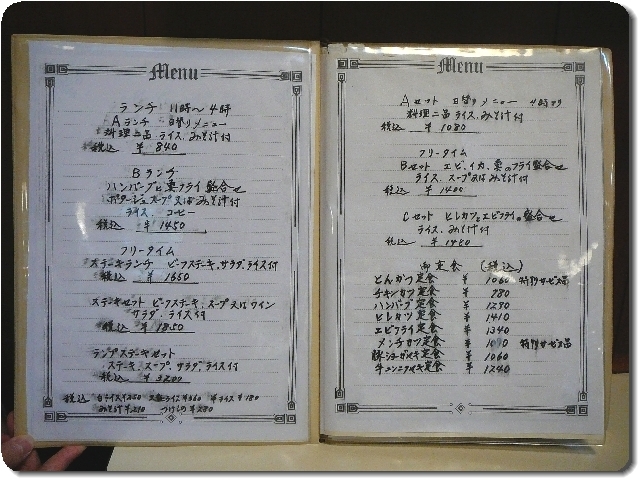 Menu
ランチ 11時〜4時
Aランチ 日替りメニュー
料理二品 ライス、みそ汁付
税込 ¥840
Bランチ
ハンバーグと フライ盛合せ
ポタージュスープ又はみそ汁付
ライス、コーヒー
税込 ¥1450
フリータイム
ステーキランチ ビーフステーキ、サラダ、ライス付
税込 ¥1650
ステーキセット ビーフステーキ、スープ又はワイン
サラダ、ライス付
税込 ¥1850
ランプステーキセット
ステーキ、スープ、サラダ、ライス付
税込 ¥3200
税込 ライス ¥250 大盛ライス 半ライス ¥180
みそ汁 つけもの ¥280
Menu
Aセット 日替りメニュー 4時ヨリ
料理二品 ライス、みそ汁付
税込 ¥1080
フリータイム
Bセット エビ、イカ、 のフライ盛合せ
ライス、スープ又はみそ汁付
税込 ¥1400
Cセット ヒレカツとエビフライの盛合せ
ライス、みそ汁付
税込 ¥1480
御定食 (税込)
とんかつ定食 ¥1060 特別サービス品
チキンカツ定食 ¥980
ハンバーグ定食 ¥1230
ヒレカツ定食 ¥1410
エビフライ定食 ¥1340
メンチカツ定食 ¥ 特別サービス品
豚ショーガヤキ定食 ¥1060
牛ニンニクヤキ定食 ¥1240